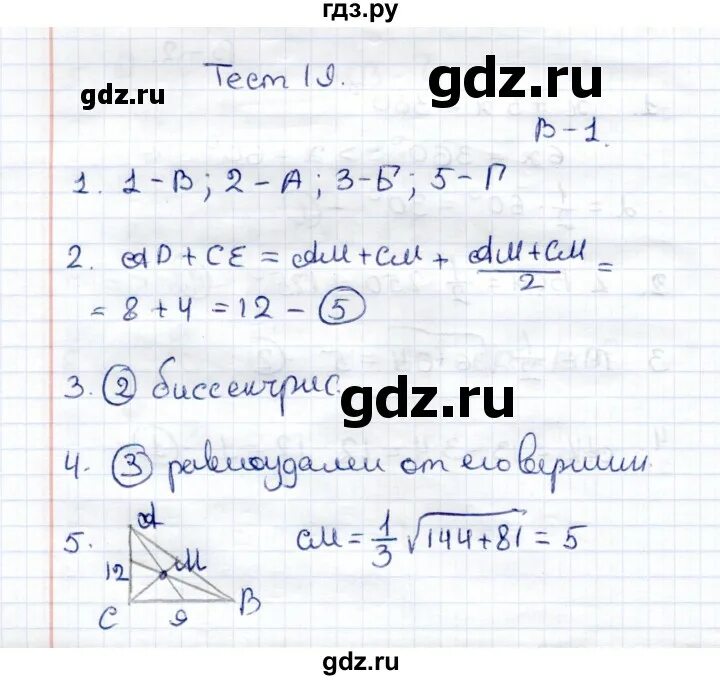 гдз.ру
gdz.ru
Тест 19.
gdz.ru
В-1.
1. 1-В; 2-А; 3-Б; 5-Г
2. AD + CE = AM + CM + (AM + CM)/2 =
= 8 + 4 = 12 - 5
3. 2 биссектрис.
gdz.ru
4. 3 равноудален от его вершин.
5. A
12
M
C
9
B
CM = 1/3 √144+81 = 5
gdz.ru